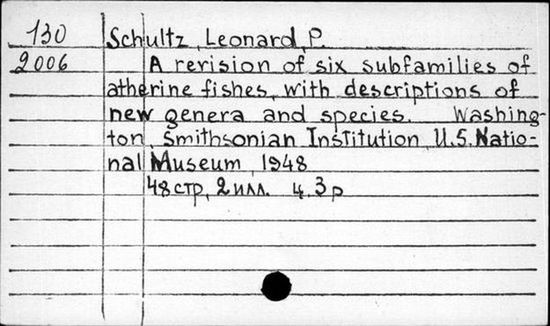 130 Schultz, Leonard, P.
2006 A rerision of six subfamilies of
atherine fishes, with descriptions of
new genera and species. Washing-
ton, Smithsonian Institution, U.S. Natio-
nal Museum, 1948
48 стр, 2 илл. ц. 3 р